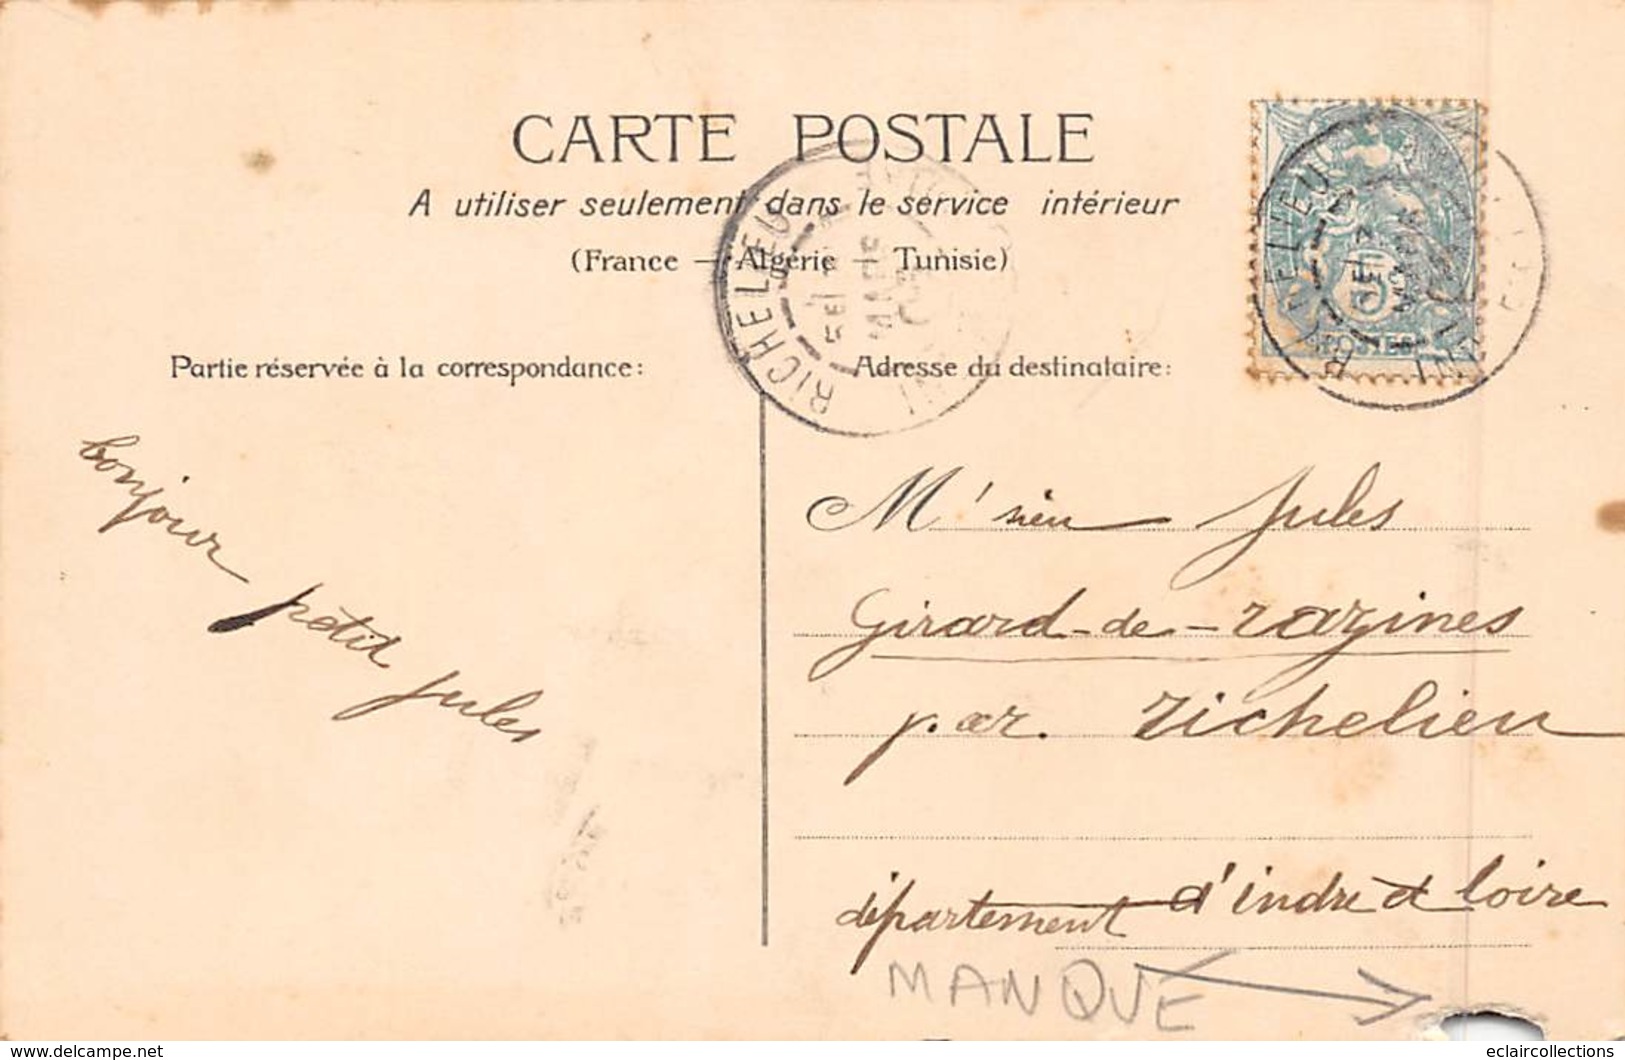 CARTE POSTALE
A utiliser seulement dans le service intérieur
(France — Algérie — Tunisie)
Partie réservée à la correspondance:
Adresse du destinataire:
RICHELIEU
MARS
RICHELIEU
5
POSTES
bonjour petit jules
M'sieu Jules
Girard-de-razines
par. richelieu
département d'indre et loire
MANQUE
eclaircollections